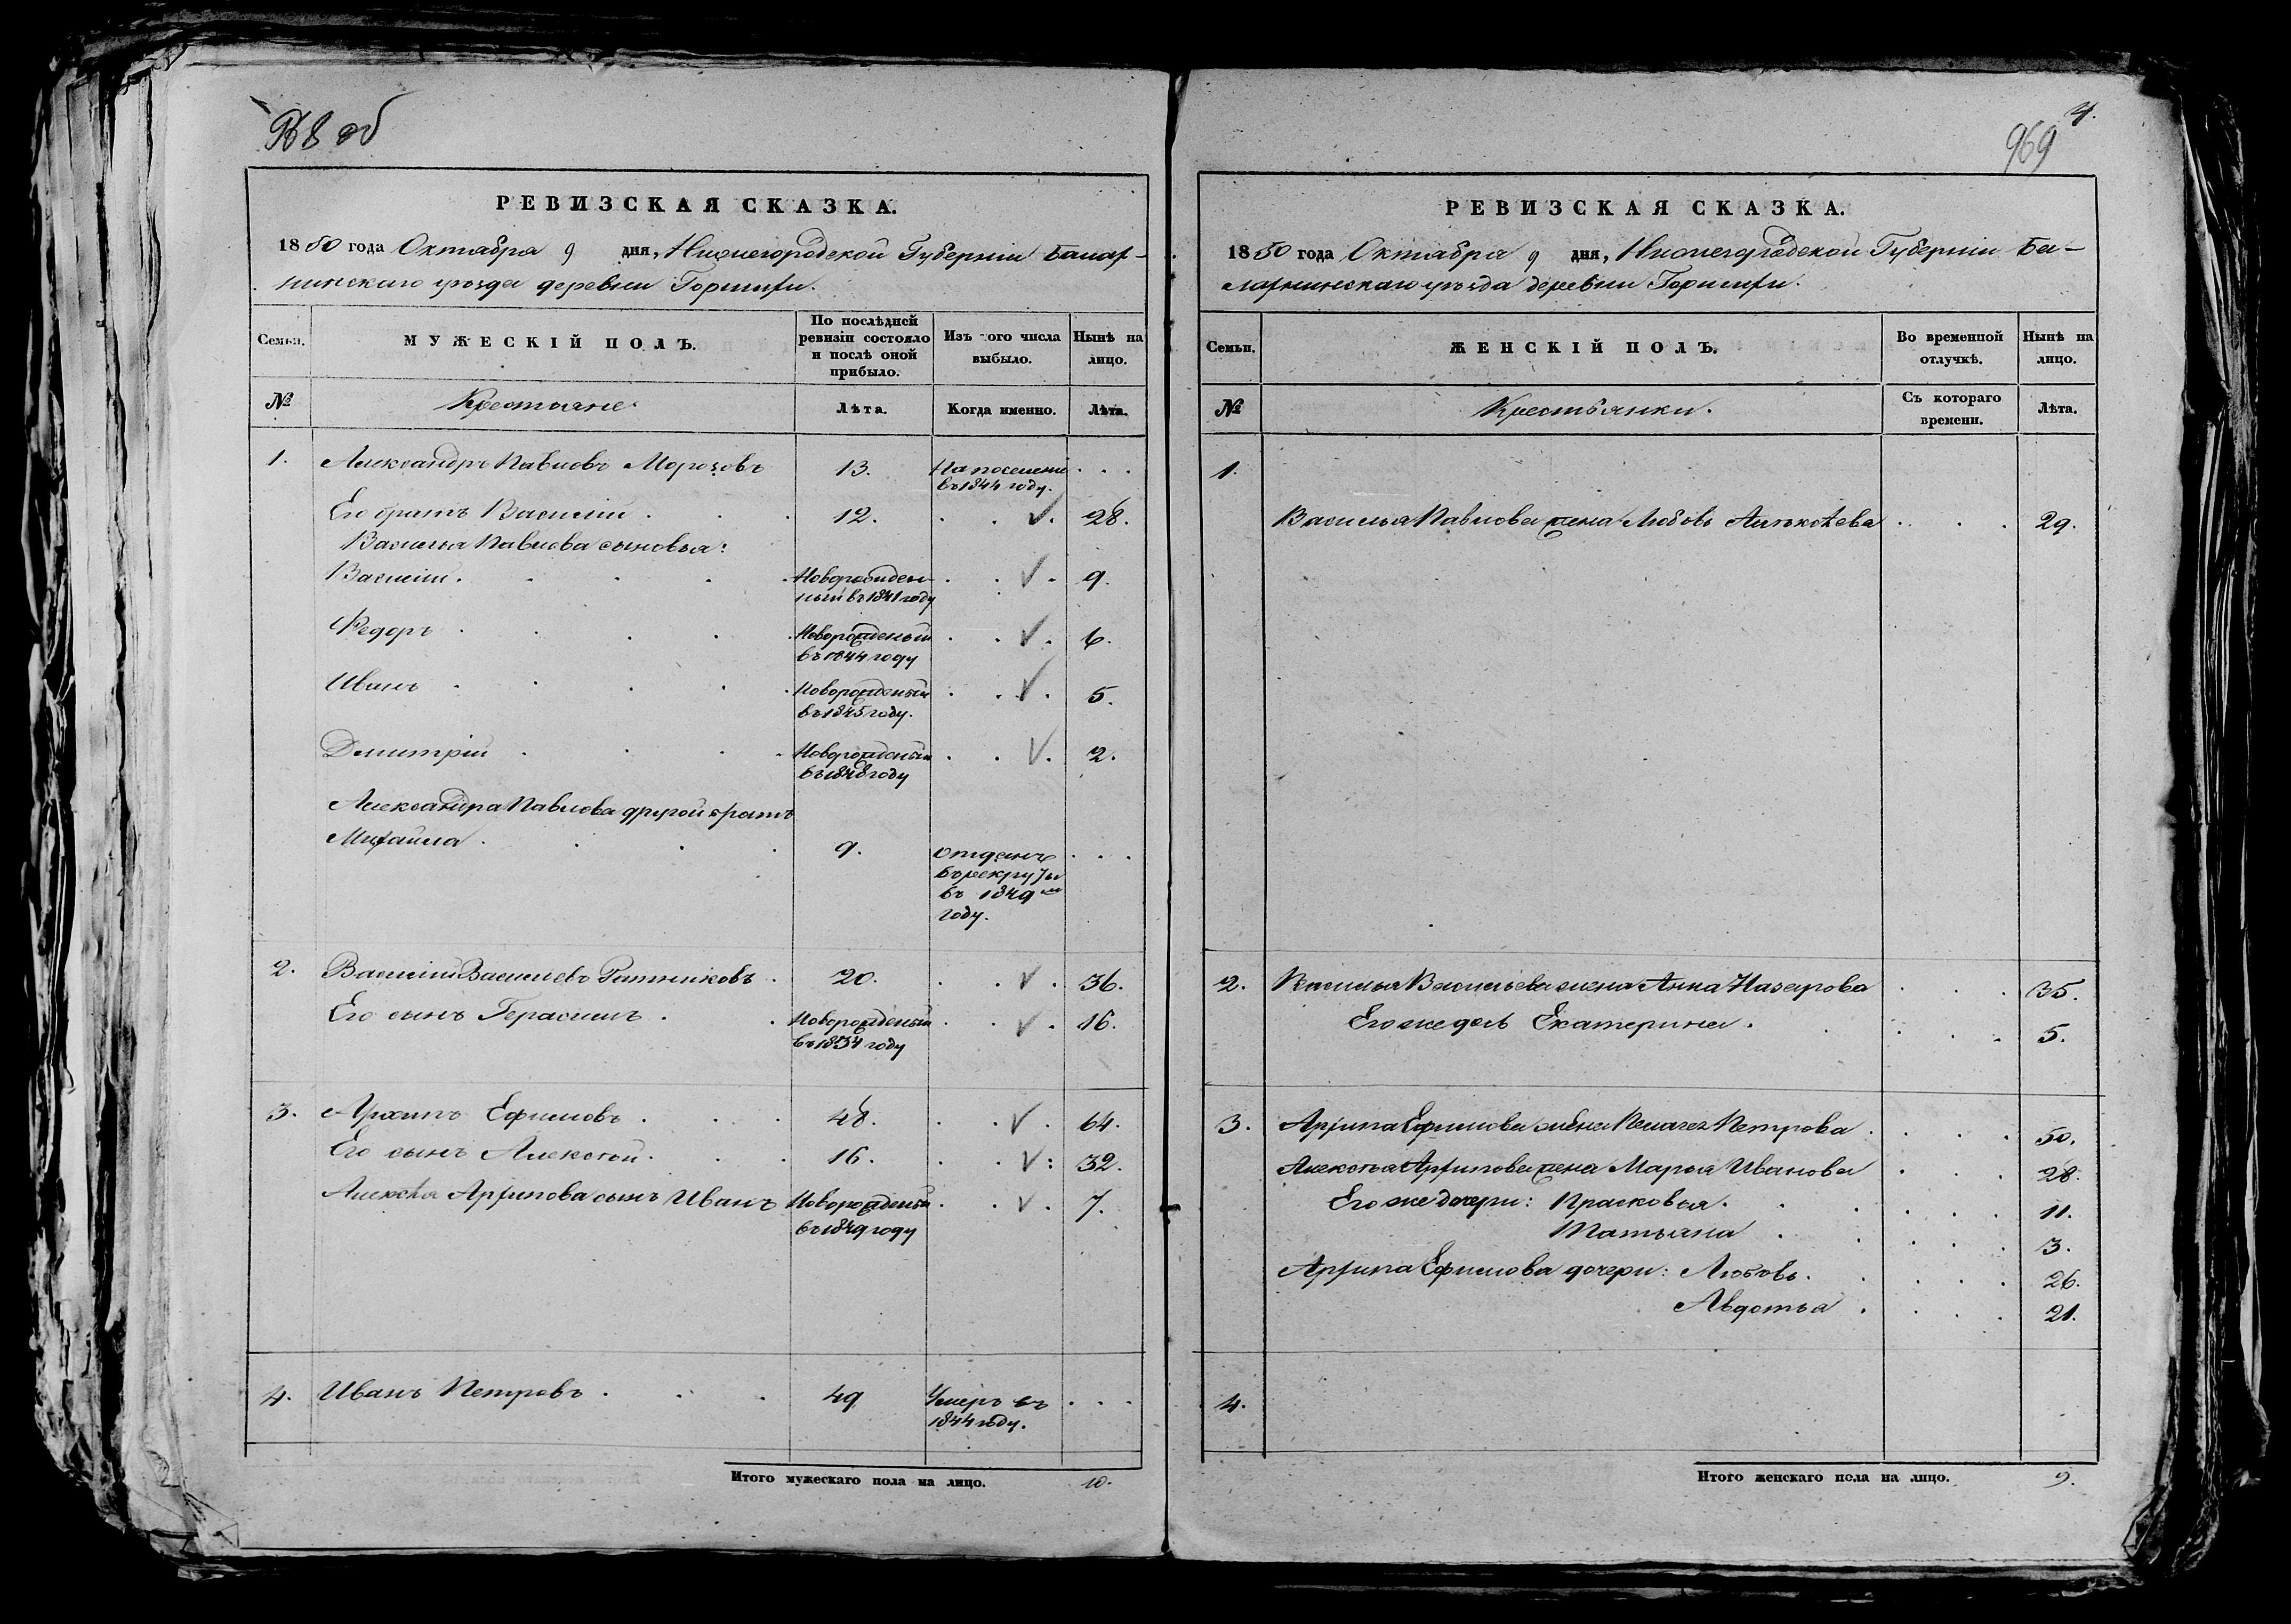 об
РЕВИЗСКАЯ СКАЗКА.
1850 года Октября 9 дня, Нижегородской Губерніи Балах-
нинскаго уѣзда деревни
Семьи.
МУЖЕСКІЙ ПОЛЪ.
По послѣдней ревизіи состояло и послѣ оной прибыло.
Изъ того числа выбыло.
Нынѣ на лицо.
№ Крестьяне Лѣта. Когда именно. Лѣта.
1. Александръ Павловъ Морозовъ 13. На поселеніе . . .
въ 1844 году.
Его братъ Василій . . . 12. . . √. 28.
Василья Павлова сыновья:
Василій . . . . . Новорожден- . . √. 9.
ный въ 1841 году
Федоръ . . . . . Новорожденый . . √. 6.
въ 1844 году
Иванъ . . . . . Новорожденый . . √. 5.
въ 1845 году.
Дмитрій . . . . Новорожденый . . √. 2.
въ 1848 году
Александра Павлова другой братъ
Михайла . . . . 9. отданъ . . .
въ рекруты
въ 1849мъ
году.
2. Василій Васильевъ 20. . . √. 36.
Его сынъ Герасимъ . . Новорожденый . . √. 16.
въ 1834 году
3. Архипъ Ефимовъ . . . 48. . . √. 64.
Его сынъ Алексѣй . . . 16. . . √: 32.
Алексѣя Архипова сынъ Иванъ Новорожденый . . √. 7.
въ году
4. Иванъ Петровъ . . . 49 Умеръ въ . . .
1844 году.
Итого мужескаго пола на лицо. 10.
4.
969
РЕВИЗСКАЯ СКАЗКА.
1850 года Октября 9 дня, Нижегородской Губерніи Ба-
лахнинскаго уѣзда деревни
Семьи.
ЖЕНСКІЙ ПОЛЪ.
Во временной отлучкѣ.
Нынѣ на лицо.
№ Крестьянки. Съ котораго времени. Лѣта.
1.
Василья Павлова жена Любовь Алексѣева . . . 29.
2. Василья Васильева жена Анна Назарова . . . 35.
Его же дочь Екатерина . . . . . 5.
3. Архипа Ефимова жена Пелагея Петрова . . . . 50.
Алексѣя Архипова жена Марья Иванова . . . 28.
Его же дочери: Прасковья . . . . . . 11.
Татьяна . . . . . 3.
Архипа Ефимова дочери: Любовь . . . . . 26.
Авдотья . . . . 21.
4.
Итого женскаго пола на лицо. 9.